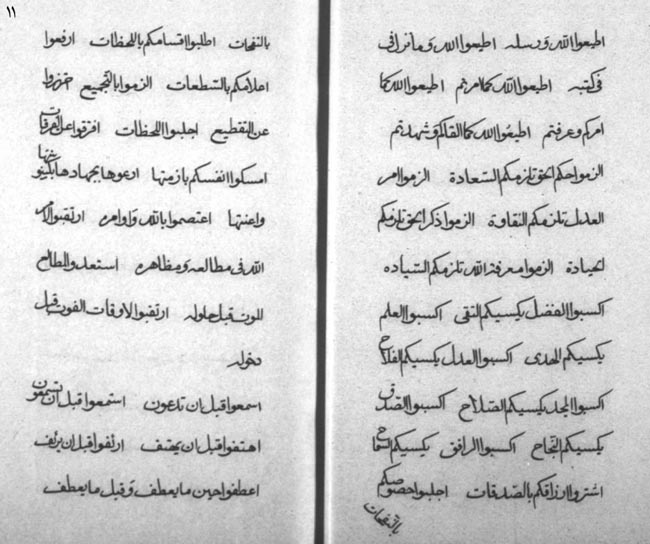 اطيعوا الله ورسله اطيعوا الله وما نزل في
في كتبه اطيعوا الله كما امرتم اطيعوا الله كما
امركم وعرفتم اطيعوا الله كما القاكم وشهدتم
الزموا حكم الحق تلزمكم السعادة الزموا امر
العدل تلزمكم النقاوة الزموا ذكر الحق تلزمكم
الحيادة الزموا معرفة الله تلزمكم السيادة
اكسبوا الفضل يكسيكم التقى اكسبوا العلم
يكسيكم الهدى اكسبوا العدل يكسيكم الفلاح
اكسبوا المجد يكسيكم الصلاح اكسبوا الصدق
يكسيكم النجاح اكسبوا الرافق يكسيكم
اشتروا ارزاقكم بالصدقات اجلبوا
بالنفحات
١١
بالنفحات اطلبوا اقسامكم باللحظات ارفعوا
اعلامكم بالسطعات الزموا بالتجميع
عن التقطيع اجلبوا اللحظات افرقوا عن
امسكوا انفسكم بازمتها ارعوها بجهادها
واعنتها اعتصموا بالله واوامره ارتقبوا
الله في مطالعه ومظاهره استعدوا
للموت قبل حلوله ارتقبوا الاوقات الفوت قبل
دخوله
اسمعوا قبل ان تدعون استمعوا قبل ان تسمعون
اهتفوا قبل ان يهتف ارئفوا قبل ان يرئف
اعطفوا حين ما يعطف وقبل ما يعطف